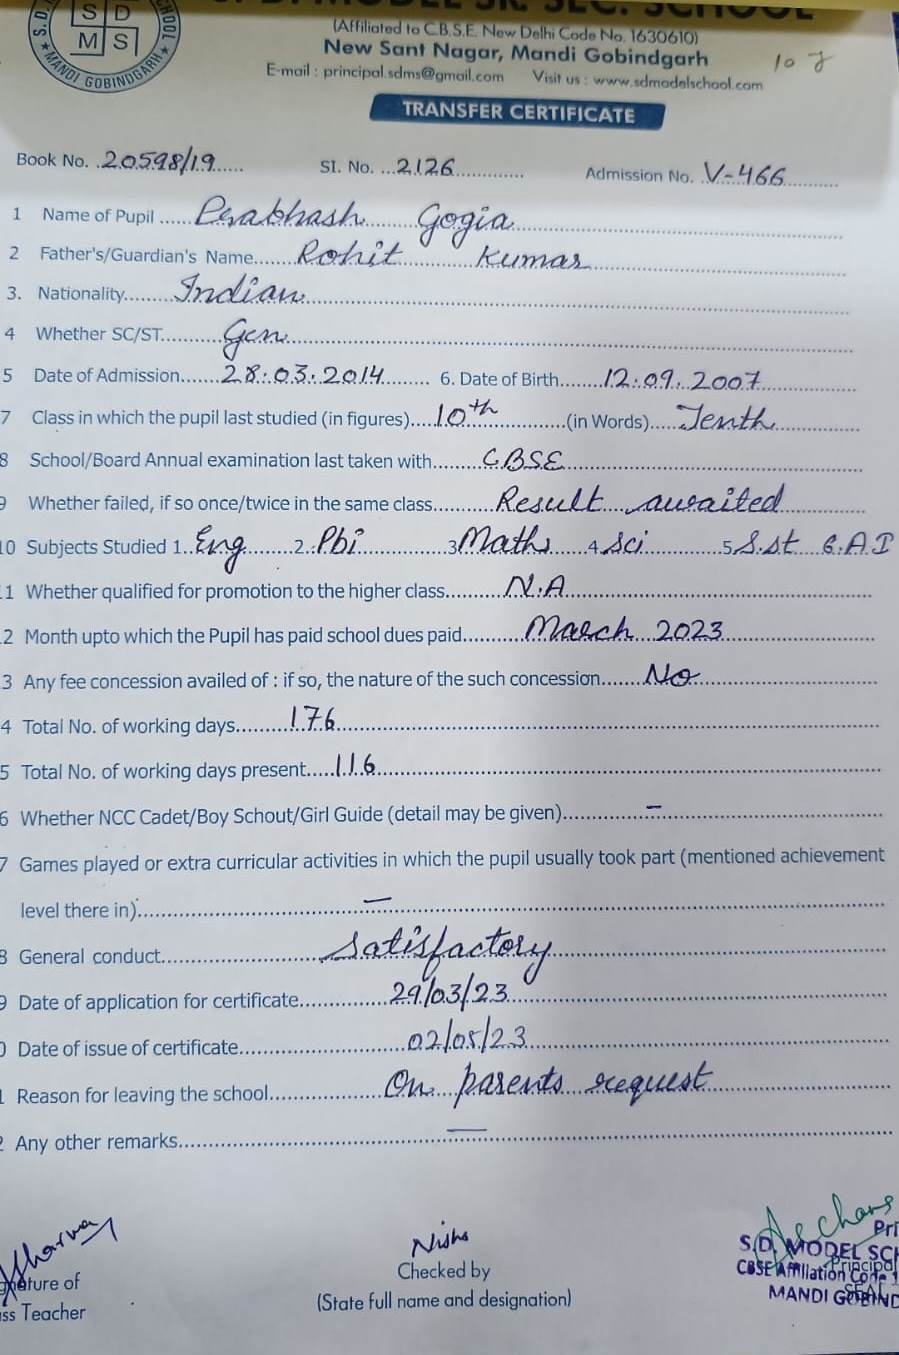 S D
M S
MANDI GOBINDGARH
MODEL SR. SEC. SCHOOL
(Affiliated to C.B.S.E. New Delhi Code No. 1630610)
New Sant Nagar, Mandi Gobindgarh
E-mail : principal.sdms@gmail.com Visit us : www.sdmodelschool.com
TRANSFER CERTIFICATE
Book No. 20598/19 Sl. No. 2126 Admission No. V-466
1 Name of Pupil Prabhash Gogia
2 Father's/Guardian's Name Rohit Kumar
3. Nationality Indian
4 Whether SC/ST Gen
5 Date of Admission 28.03.2014 6. Date of Birth 12.09.2007
7 Class in which the pupil last studied (in figures) 10th (in Words) Tenth
8 School/Board Annual examination last taken with CBSE
9 Whether failed, if so once/twice in the same class Result awaited
10 Subjects Studied 1 Eng 2 Pbi 3 Maths 4 Sci 5 S.st 6.A.I
1 Whether qualified for promotion to the higher class N.A
2 Month upto which the Pupil has paid school dues paid March 2023
3 Any fee concession availed of : if so, the nature of the such concession No
4 Total No. of working days 176
5 Total No. of working days present 116
6 Whether NCC Cadet/Boy Schout/Girl Guide (detail may be given) –
7 Games played or extra curricular activities in which the pupil usually took part (mentioned achievement
level there in) –
8 General conduct Satisfactory
9 Date of application for certificate 29/03/23
0 Date of issue of certificate 02/05/23
1 Reason for leaving the school On parents request
2 Any other remarks –
Sharma Nisha
Checked by
(State full name and designation)
ature of
ss Teacher
Pri
S.D. MODEL SCH
Principal
CBSE Affiliation Code 1
SEAL
MANDI GOBIND